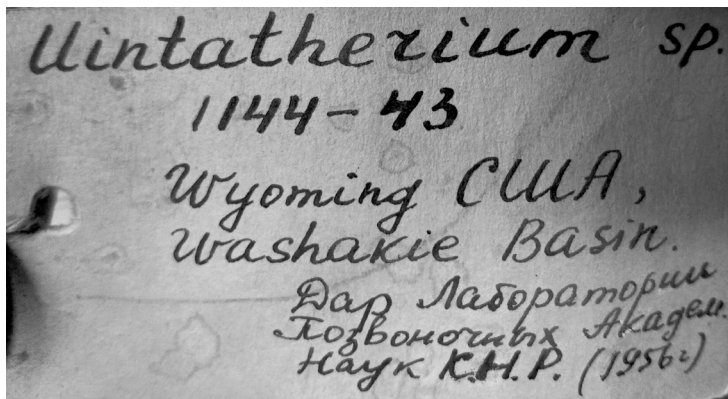 Uintatherium sp.
1144-43
Wyoming США,
Washakie Basin.
Дар Лаборатории
Позвоночных Академ.
Наук К.Н.Р. (1956г)